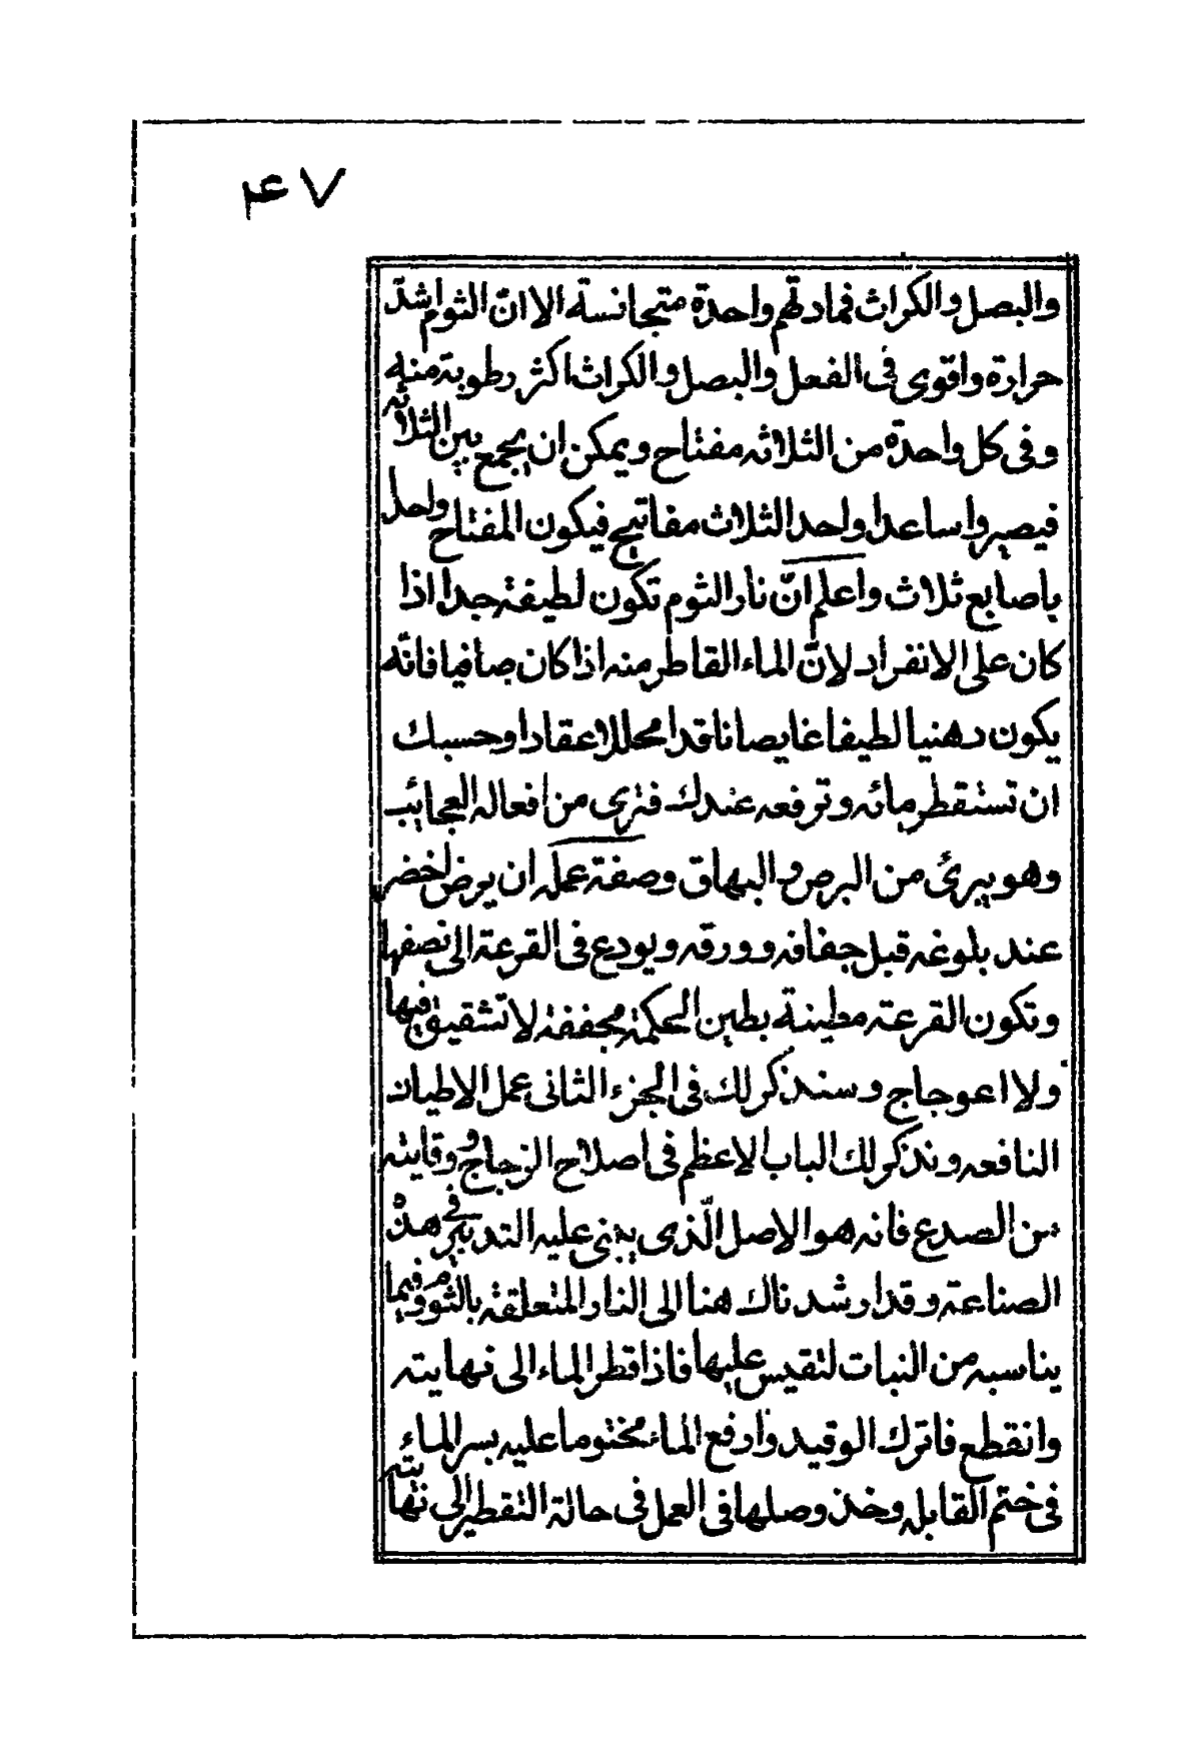 ۴۷
والبصل والكراث فمادتهم واحدة متجانسة الا انّ الثوم اشدّ
حرارة واقوى فى الفعل والبصل والكراث اكثر رطوبة منه
وفى كل واحدة من الثلاثه مفتاح ويمكن ان يجمع بين الثلاثه
فيصيروا ساعدا واحد الثلاث مفاتيح فيكون المفتاح واحد
باصابع ثلاث واعلم انّ نار الثوم تكون لطيفة جدا اذا
كان على الانفراد لانّ الماء القاطر منه اذا كان صافيا فانّه
يكون دهنيا لطيفا غايصا ناقدا محللا عقادا وحسبك
ان تستقطر مائه وترفعه عندك فترى من افعاله العجائب
وهو يبرئ من البرص والبهاق وصفة عمله ان يرض اخضر
عند بلوغه قبل جفافه وورقه ويودع فى القرعة الى نصفها
وتكون القرعة مطينة بطين الحكمة مجففة لا تشقيق فيها
ولا اعوجاج وسنذكر لك فى الجزء الثانى عمل الاطيان
النافعه ونذكر لك الباب الاعظم فى اصلاح الزجاج ووقايته
من الصدع فانه هو الاصل الّذى يبنى عليه التدبير فى هذه
الصناعة وقد ارشدناك هنا الى النار المتعلقة بالثوم وفيما
يناسبه من النبات لتقيس عليها فاذا قطر الماء الى نهايته
وانقطع فاترك الوقيد وارفع الماء مختوما عليه بسر الماء
فى ختم القابله وخذ وصلها فى العمل فى حالة التقطير الى نهايته